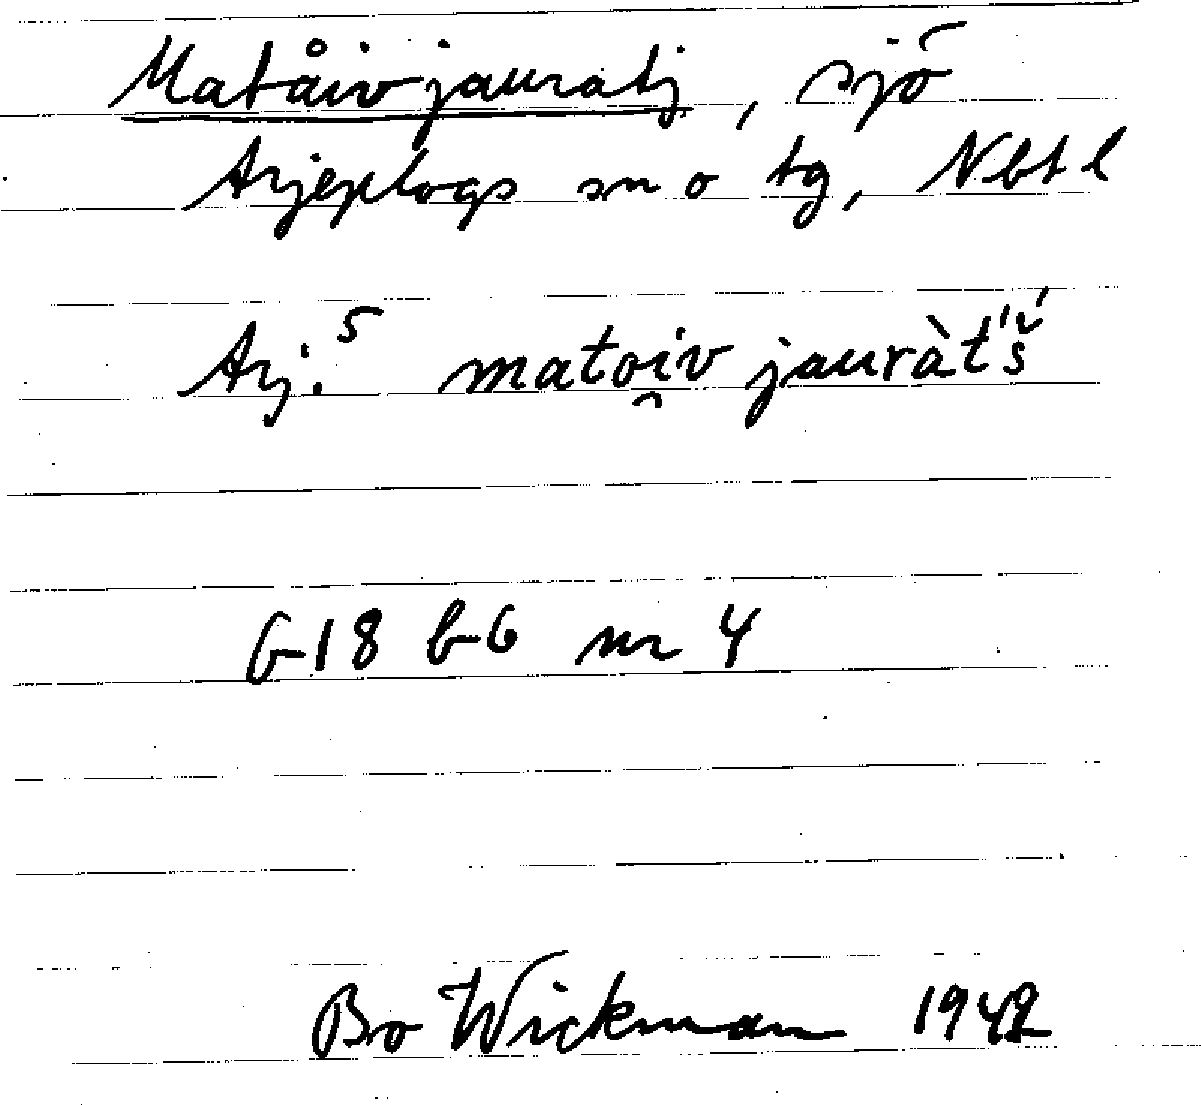 Matåivjauratj, sjö
Arjeplogs sn o tg, Nbt l
Arj.5 matoi̯v jauràt'š́
G18 b6 nr 4
Bo Wickman 1942